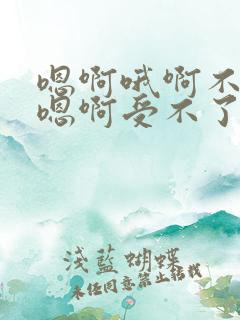 嗯啊哦啊不
嗯啊受不了
浅藍蝴蝶
未经同意禁止转载